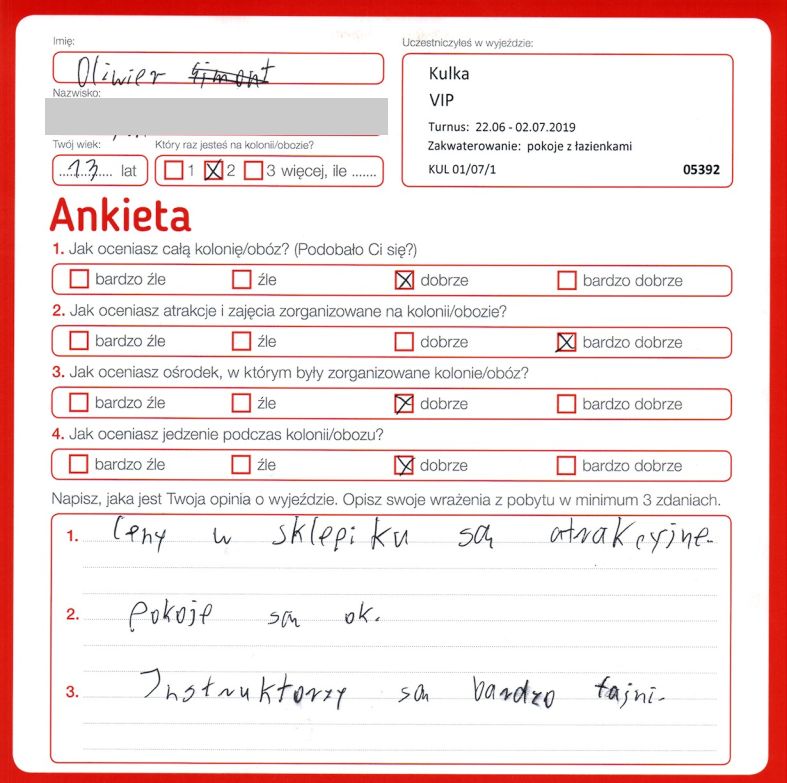 Imię:
Uczestniczyłeś w wyjeździe:
Oliwier
Kulka
VIP
Nazwisko:
Turnus: 22.06 - 02.07.2019
Zakwaterowanie: pokoje z łazienkami
KUL 01/07/1 05392
Twój wiek:
Który raz jesteś na kolonii/obozie?
13 lat
1 2 3 więcej, ile .......
Ankieta
1. Jak oceniasz całą kolonię/obóz? (Podobało Ci się?)
bardzo źle źle dobrze bardzo dobrze
2. Jak oceniasz atrakcje i zajęcia zorganizowane na kolonii/obozie?
bardzo źle źle dobrze bardzo dobrze
3. Jak oceniasz ośrodek, w którym były zorganizowane kolonie/obóz?
bardzo źle źle dobrze bardzo dobrze
4. Jak oceniasz jedzenie podczas kolonii/obozu?
bardzo źle źle dobrze bardzo dobrze
Napisz, jaka jest Twoja opinia o wyjeździe. Opisz swoje wrażenia z pobytu w minimum 3 zdaniach.
1. Ceny w sklepiku są atrakcyjne.
2. Pokoje są ok.
3. Instruktorzy są bardzo fajni.